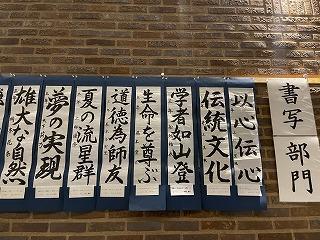 書写部門
以心伝心
伝統文化
学者如山登
生命を尊ぶ
道徳為師友
夏の流星群
夢の実現
雄大な自然